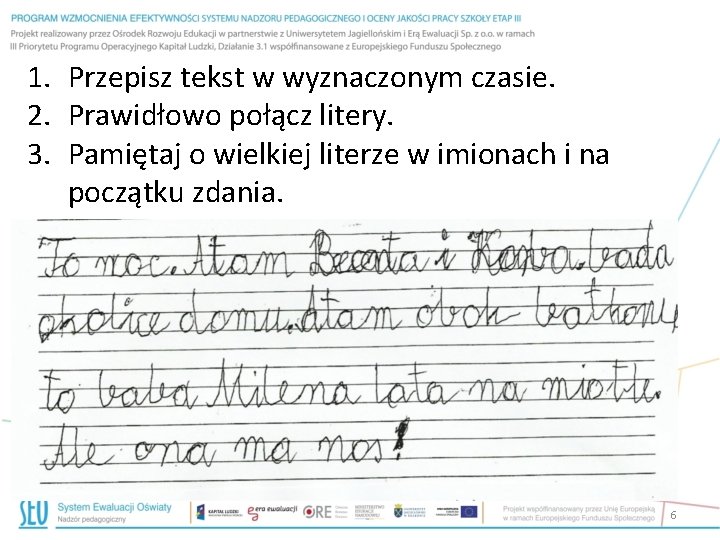 PROGRAM WZMOCNIENIA EFEKTYWNOŚCI SYSTEMU NADZORU PEDAGOGICZNEGO I OCENY JAKOŚCI PRACY SZKOŁY ETAP III
Projekt realizowany przez Ośrodek Rozwoju Edukacji w partnerstwie z Uniwersytetem Jagiellońskim i Erą Ewaluacji Sp. z o.o. w ramach
III Priorytetu Programu Operacyjnego Kapitał Ludzki, Działanie 3.1 współfinansowane z Europejskiego Funduszu Społecznego
1. Przepisz tekst w wyznaczonym czasie.
2. Prawidłowo połącz litery.
3. Pamiętaj o wielkiej literze w imionach i na
początku zdania.
To noc. Atam i bada
okolice domu. Atam obok
to baba Milena lata na miotle.
Ale ona ma nos!
SEO System Ewaluacji Oświaty
Nadzór pedagogiczny
KAPITAŁ LUDZKI
era ewaluacji
ORE
Projekt współfinansowany przez Unię Europejską
w ramach Europejskiego Funduszu Społecznego
6